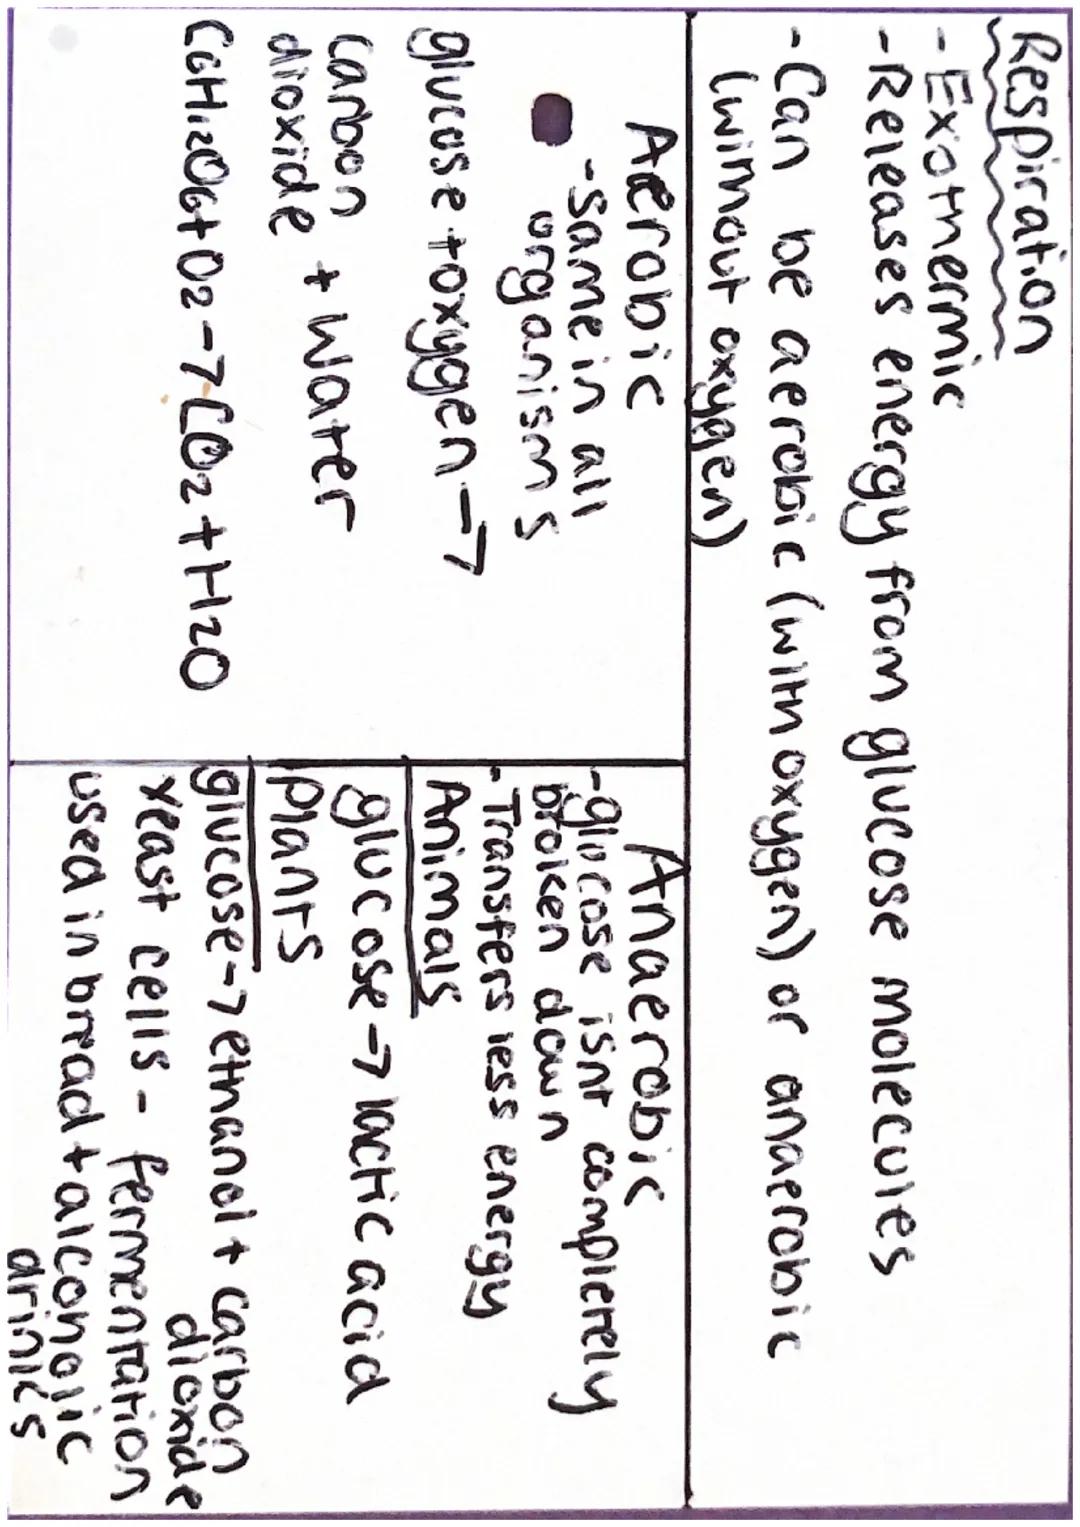 Respiration
- Exothermic
- Releases energy from glucose molecules
- Can be aerobic (with oxygen) or anaerobic
(without oxygen)
Aerobic
- same in all
organisms
glucose + oxygen ->
carbon + water
dioxide
C6H12O6 + O2 -> CO2 + H2O
Anaerobic
- glucose isnt completely
broken down
- Transfers less energy
Animals
glucose -> lactic acid
Plants
glucose -> ethanol + carbon
dioxide
Yeast cells - fermentation
used in bread + alcoholic
drinks